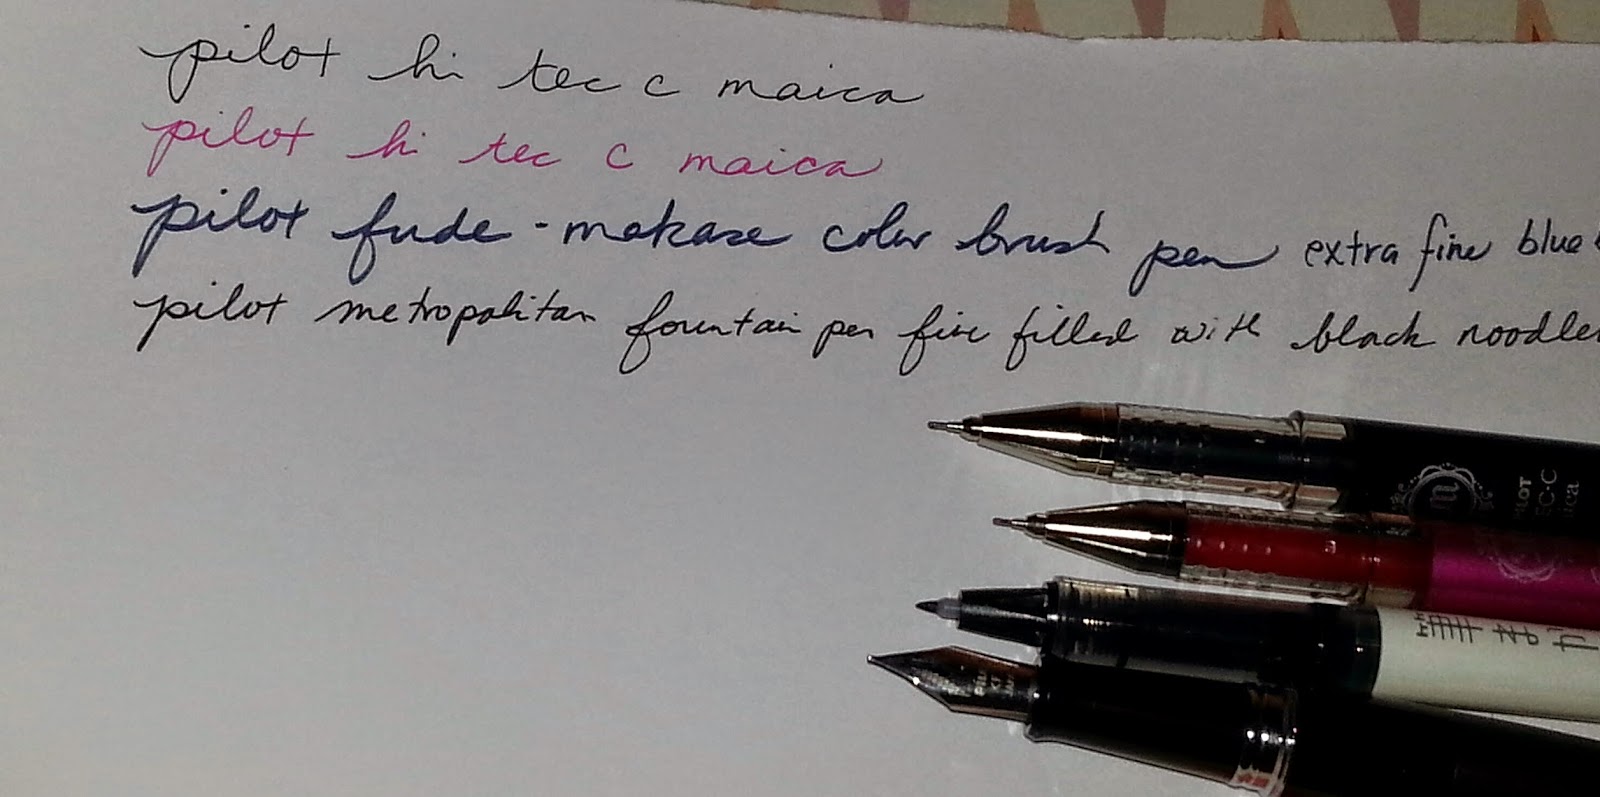 pilot hi tec c maica
pilot hi tec c maica
pilot fude-makase color brush pen extra fine blue
pilot metropolitan fountain pen fine filled with black noodler
m
PILOT
EC-C
ica